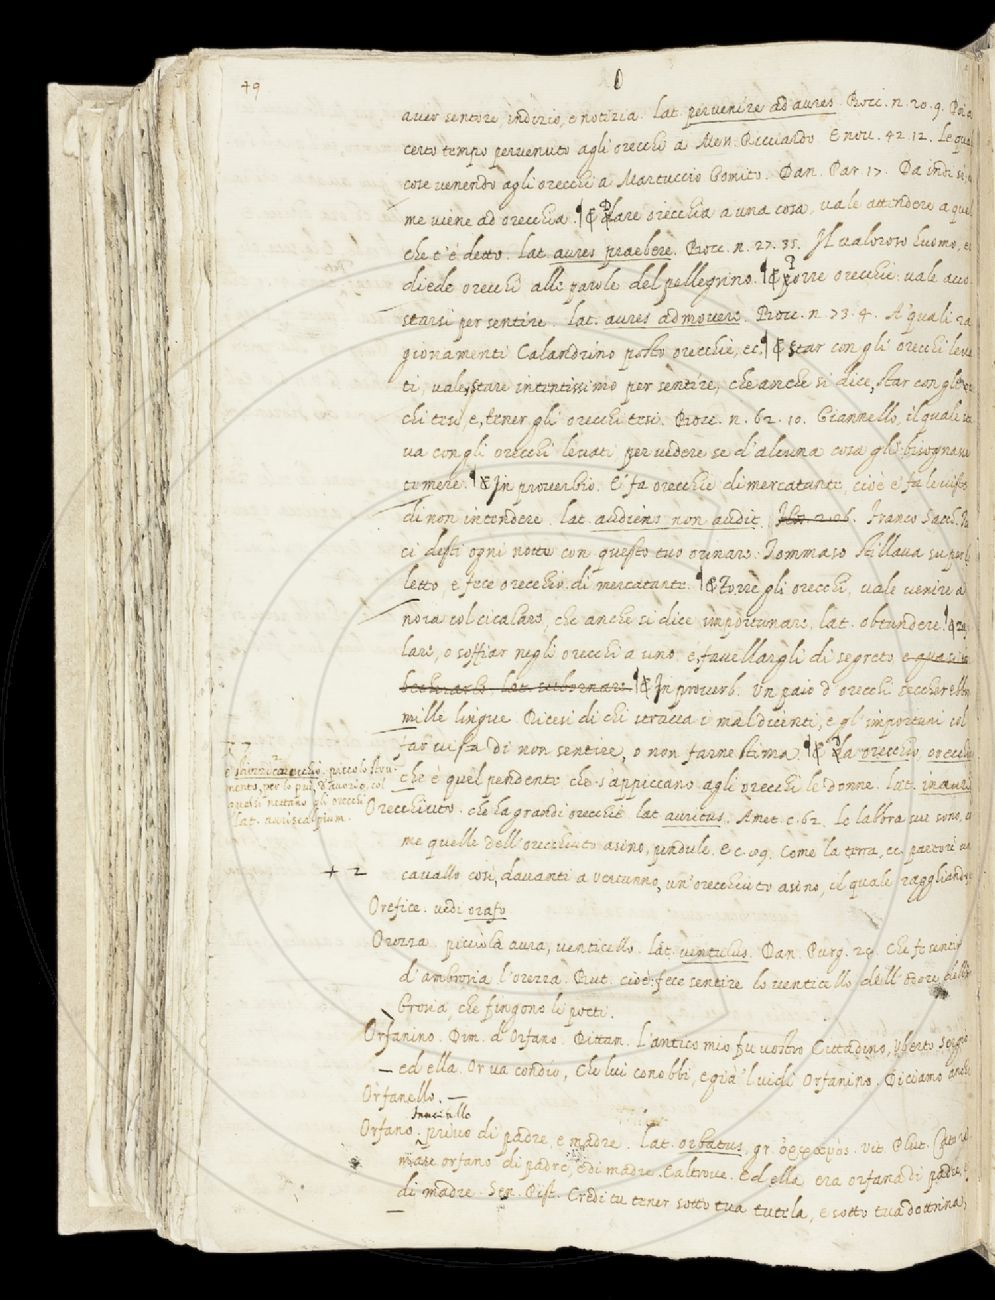 49
O
auer sentore, indizio, e notizia. lat. pervenire ad aures. Bocc. n. 20. 9. Poi a
certo tempo pervenuto agli orecchi a Messer Ricciardo. E nov. 42. 12. Le qua
cose venendo agli orecchi a Martuccio Gomito. Dan. Par. 17. Da indi si, co
me viene ad orecchia. ¶ E Dare orecchia a una cosa, vale attendere a quel
che t'é detto. lat. aures praebere. Bocc. n. 27. 35. Il valoroso huomo, e
diede orecchi alle parole del pellegrino. ¶ E Porre orecchie: vale acco
starsi per sentire. lat. aures admovere. Bocc. n. 73. 4. A' quali ra
gionamenti Calandrino posto orecchie, ec. ¶ E Star con gli orecchi leva
ti, vale, stare intentissimo per sentire, che anche si dice, star con gli ore
chi tesi, e, tener gli orecchi tesi. Bocc. n. 62. 10. Giannello, il quale sta
va con gli orecchi levati per vedere se d'alcuna cosa gli bisognava
temere. ¶ E In proverbio. E' fa orecchie di mercatante, cioè e' fa le viste
di non intendere. lat. audiens non audit. Franco Sacch. Fa
ci desti ogni notte con questo tuo orinare. Tommaso stillava su per l
letto, e fece orecchie di mercatante. ¶ E Torre gli orecchi, vale venire a
noia col cicalare, che anche si dice importunare. lat. obtundere. ¶
lare, o soffiar negli orecchi a uno. e, favellargli di segreto e quasi in
lat. subornare. ¶ E In proverb. Un paio d'orecchi seccherebbon
mille lingue. Dicesi di chi stracca i maldicenti, e gl'importuni col
far vista di non sentire, o non farne stima. ¶ E Da orecchio, orecchi
che è quel pendente che s'appiccano agli orecchi le donne. lat. inauris
piccolo stru
mento, per lo più d'avorio, col
quale si nettano gli orecchi
lat. auriscalpium.
Orecchiuto. che ha grandi orecchie lat. auritus. Amet. c. 62. Le labbra sue sono, co
me quelle dell'orecchiuto asino, pendule. E c. 89. Come la terra, ec. partorì un
+ 2
cavallo così, davanti a Vertunno, un'orecchiuto asino, il quale ragghiando
Orefice. vedi orafo
Orezza. picciola aura, venticello. lat. ventulus. Dan. Purg. 24. Che fe sentir
d'ambrosia l'orezza. But. cioè: fece sentire lo venticello dell'odore dell'
brosia, che fingono li poeti.
Orfanino. Dim. d'Orfano. Dittam. L'antico mio fu vostro Cittadino,
ed ella. Or va condio, Che lui conobbi, e già 'l vidi Orfanino. Diciamo anche
Orfanello.
fanciullo
Orfano. privo di padre, e madre. Lat. orbatus, gr. ὀρφανός. Vit. Plut.
mase orfano di padre, e di madre. E altrove. Ed ella era orfana di padre, e
di madre. Sen. Pist. Credi tu tener sotto tua tutela, e sotto tua dottrina,